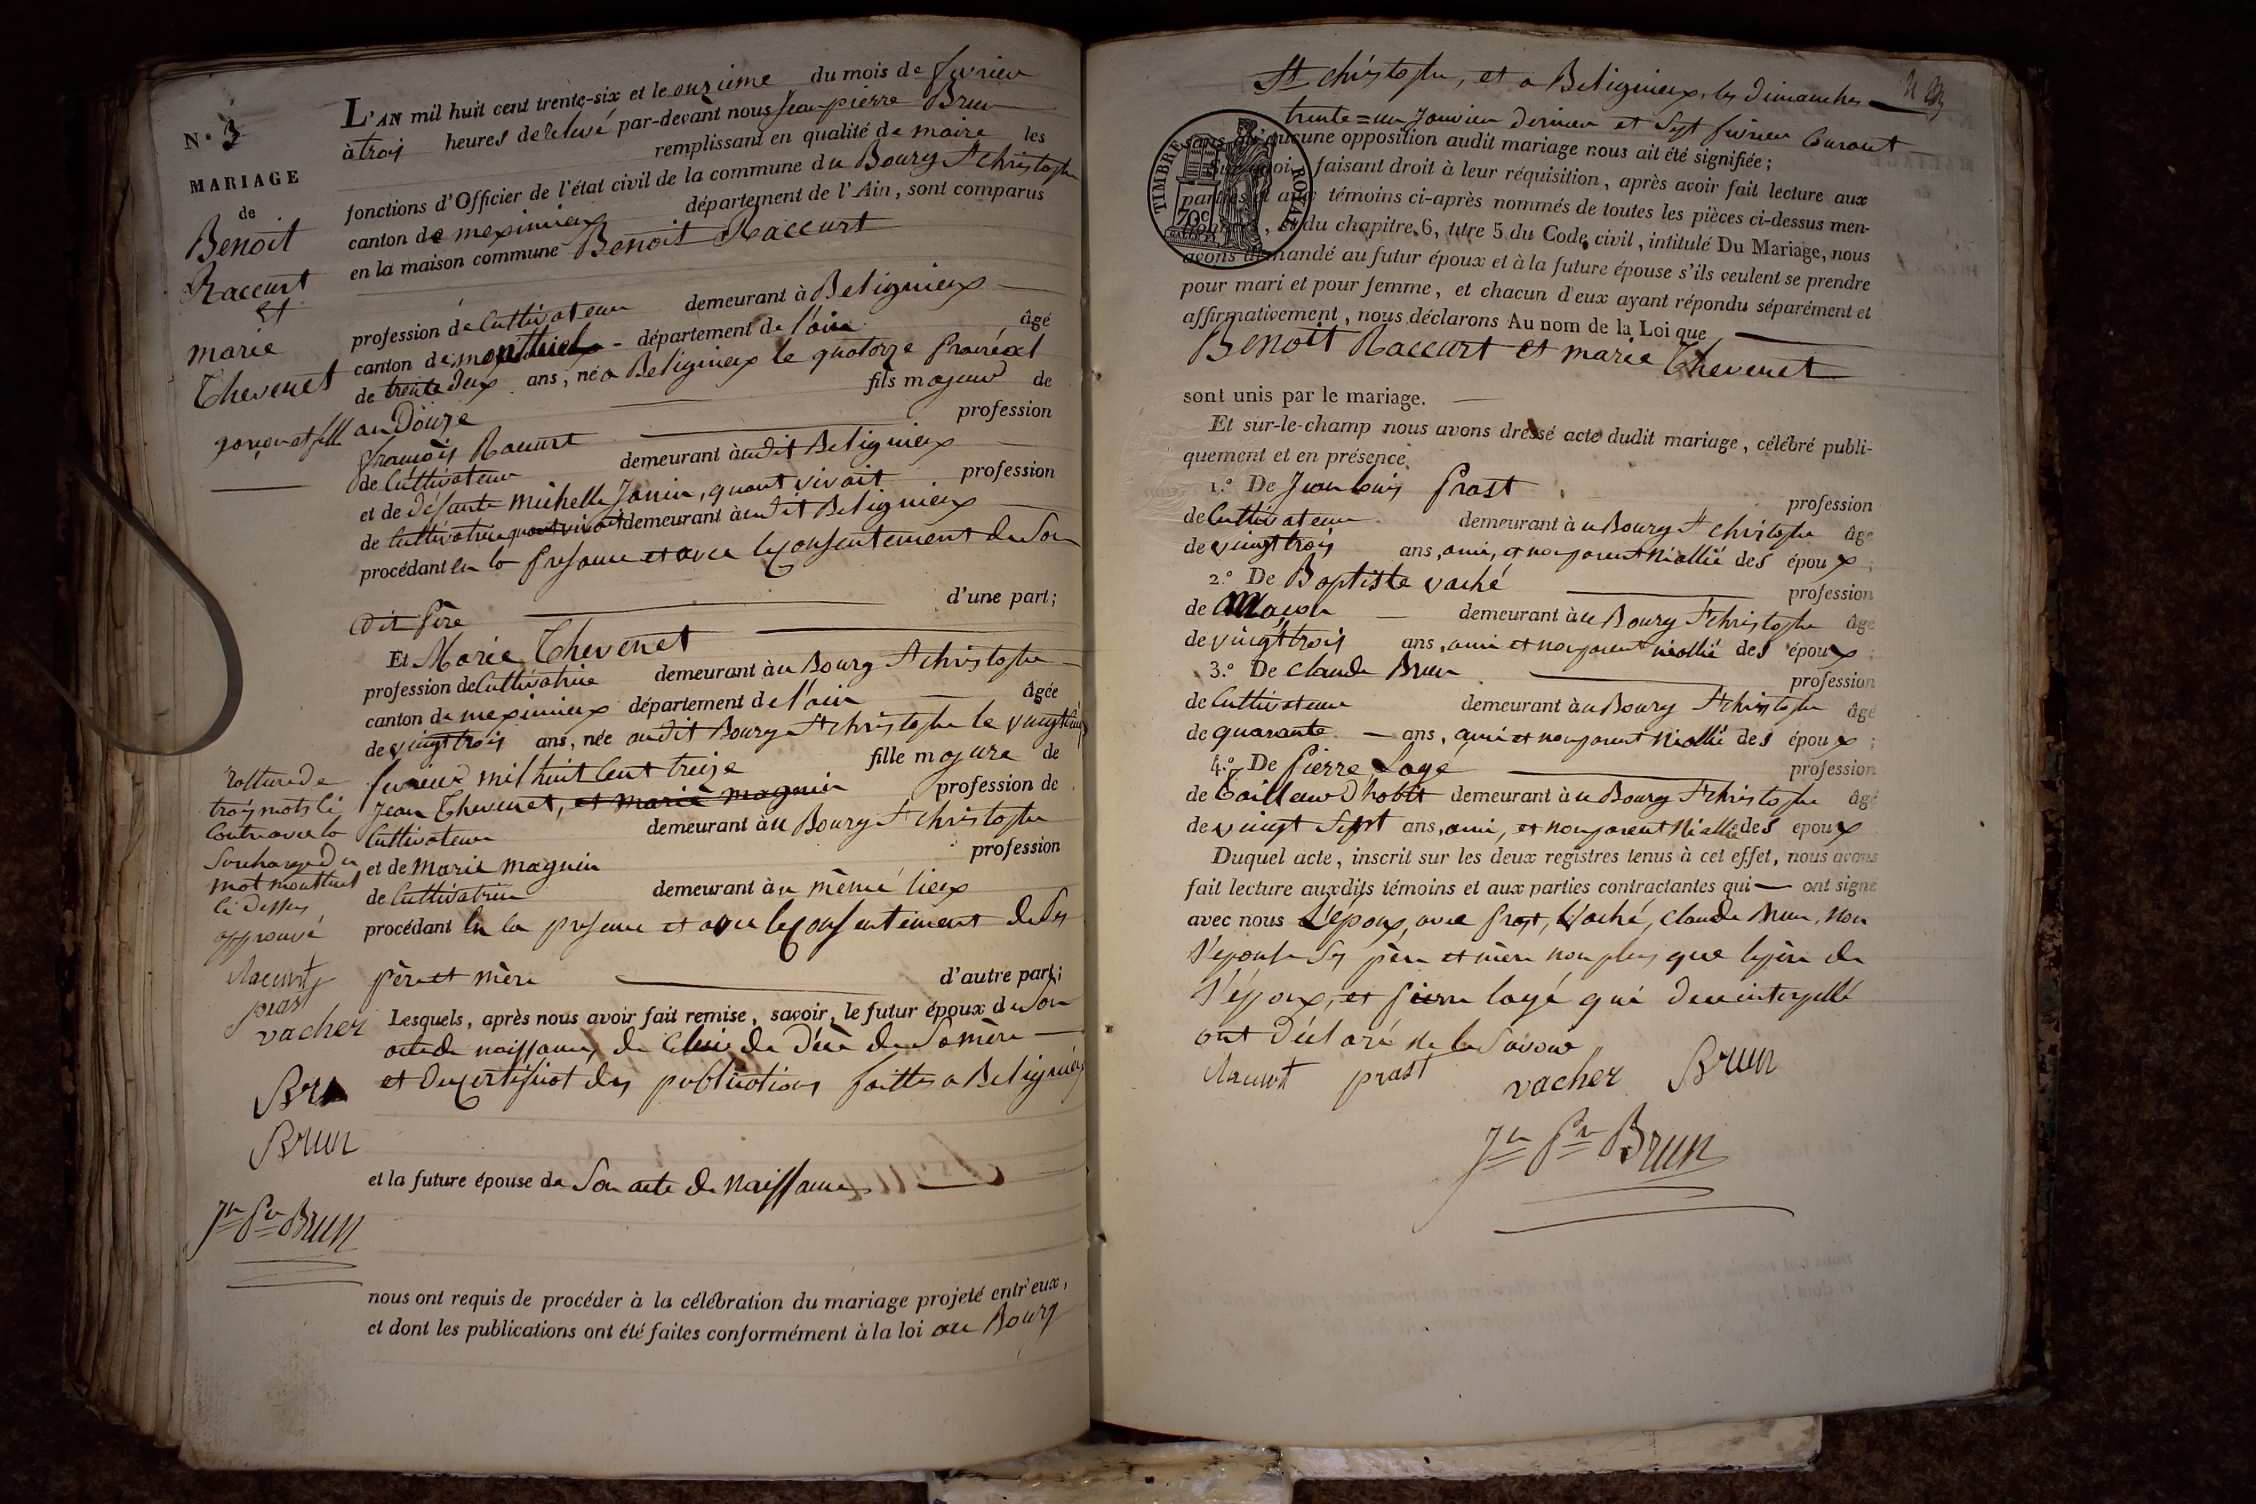 N.o 3
MARIAGE
de
Benoit
Raccurt
et
marie
Thevenet
garçon et fille
L'AN mil huit cent trente-six et le onzieme du mois de fevrier
à trois heures de relevé par-devant nous Jean pierre Brun
remplissant en qualité de maire les
fonctions d'Officier de l'état civil de la commune du Bourg St christophe
canton de meximieux département de l'Ain, sont comparus
en la maison commune Benoit Raccurt
profession de Cultivateur demeurant à Beligneux
canton de montluel département de l'ain âgé
de trente deux ans, né a Beligneux le quatorze prairéal
an Douze fils majeur de
françois Racurt profession
de Cultivateur demeurant audit Beligneux
et de défunte michelle Janin, quant vivait profession
de Cultivatrice quant vivait demeurant audit Beligneux
procédant en la presence et avec le consentement de Son
dit père d'une part;
Et Marie Thevenet
profession de Cultivatrice demeurant àu Bourg St christophe
canton de meximieux département de l'ain âgée
de vingt trois ans, née audit Bourg St christophe le vingt
fevrier mil huit Cent treize fille majure de
Jean Thevenet, et marie magnin profession de
Cultivateur demeurant àu Bourg St christophe
et de marie magnin profession
de Cultivatrice demeurant àu même lieux
procédant en la presence et avec le consentement de Ses
père et mère d'autre part;
Lesquels, après nous avoir fait remise, savoir, le futur époux de Son
acte de naissance, de Celui de décè de Sa mère
et du certificat des publications faittes a Beligneux
et la future épouse de Son acte de naissance
nous ont requis de procéder à la célébration du mariage projeté entr'eux,
et dont les publications ont été faites conformément à la loi au Bourg
rotture de
trois mots ci
Contre avec la
Surcharge du
mot montluel
ci dessus
approuvé
Racurt
prast
vacher
Brun
Jn Pre Brun
St christophe, et a Beligneux, les dimanches
trente=un Janvier dernier et Sept fevrier Courant
sans qu'aucune opposition audit mariage nous ait été signifiée;
faisant droit à leur réquisition, après avoir fait lecture aux
parties et aux témoins ci-après nommés de toutes les pièces ci-dessus men-
, et du chapitre 6, titre 5 du Code civil, intitulé Du Mariage, nous
avons demandé au futur époux et à la future épouse s'ils veulent se prendre
pour mari et pour femme, et chacun d'eux ayant répondu séparément et
affirmativement, nous déclarons Au nom de la Loi que
Benoit Raccurt et marie Thevenet
sont unis par le mariage.
TIMBRE ROYAL
70c
Et sur-le-champ nous avons dressé acte dudit mariage, célébré publi-
quement et en présence
1.o De Jean louis prast profession
de Cultivateur demeurant à u Bourg St christophe âgé
de vingt trois ans, ami, et non parent ni allié des époux;
2.o De Baptiste vaché profession
de Maçon demeurant àu Bourg St christophe âgé
de vingt trois ans, ami et non parent ni allié des époux;
3.o De claude Brun profession
de Cultivateur demeurant àu Bourg St christophe âgé
de quarante ans, ami et non parent ni allié des époux;
4.o De pierre Layé profession
de Tailleur d'habit demeurant àu Bourg St christophe âgé
de vingt Sept ans, ami, et non parent ni allié des époux
Duquel acte, inscrit sur les deux registres tenus à cet effet, nous avons
fait lecture auxdits témoins et aux parties contractantes qui ont signé
avec nous L'époux, avec prast, Vaché, claude Brun, non
l'épouse Ses père et mère non plus que le père de
l'époux, et pierre layé qui de ce interpellé
ont déclaré ne le Savoir
Racurt prast vacher Brun
Jn Pre Brun